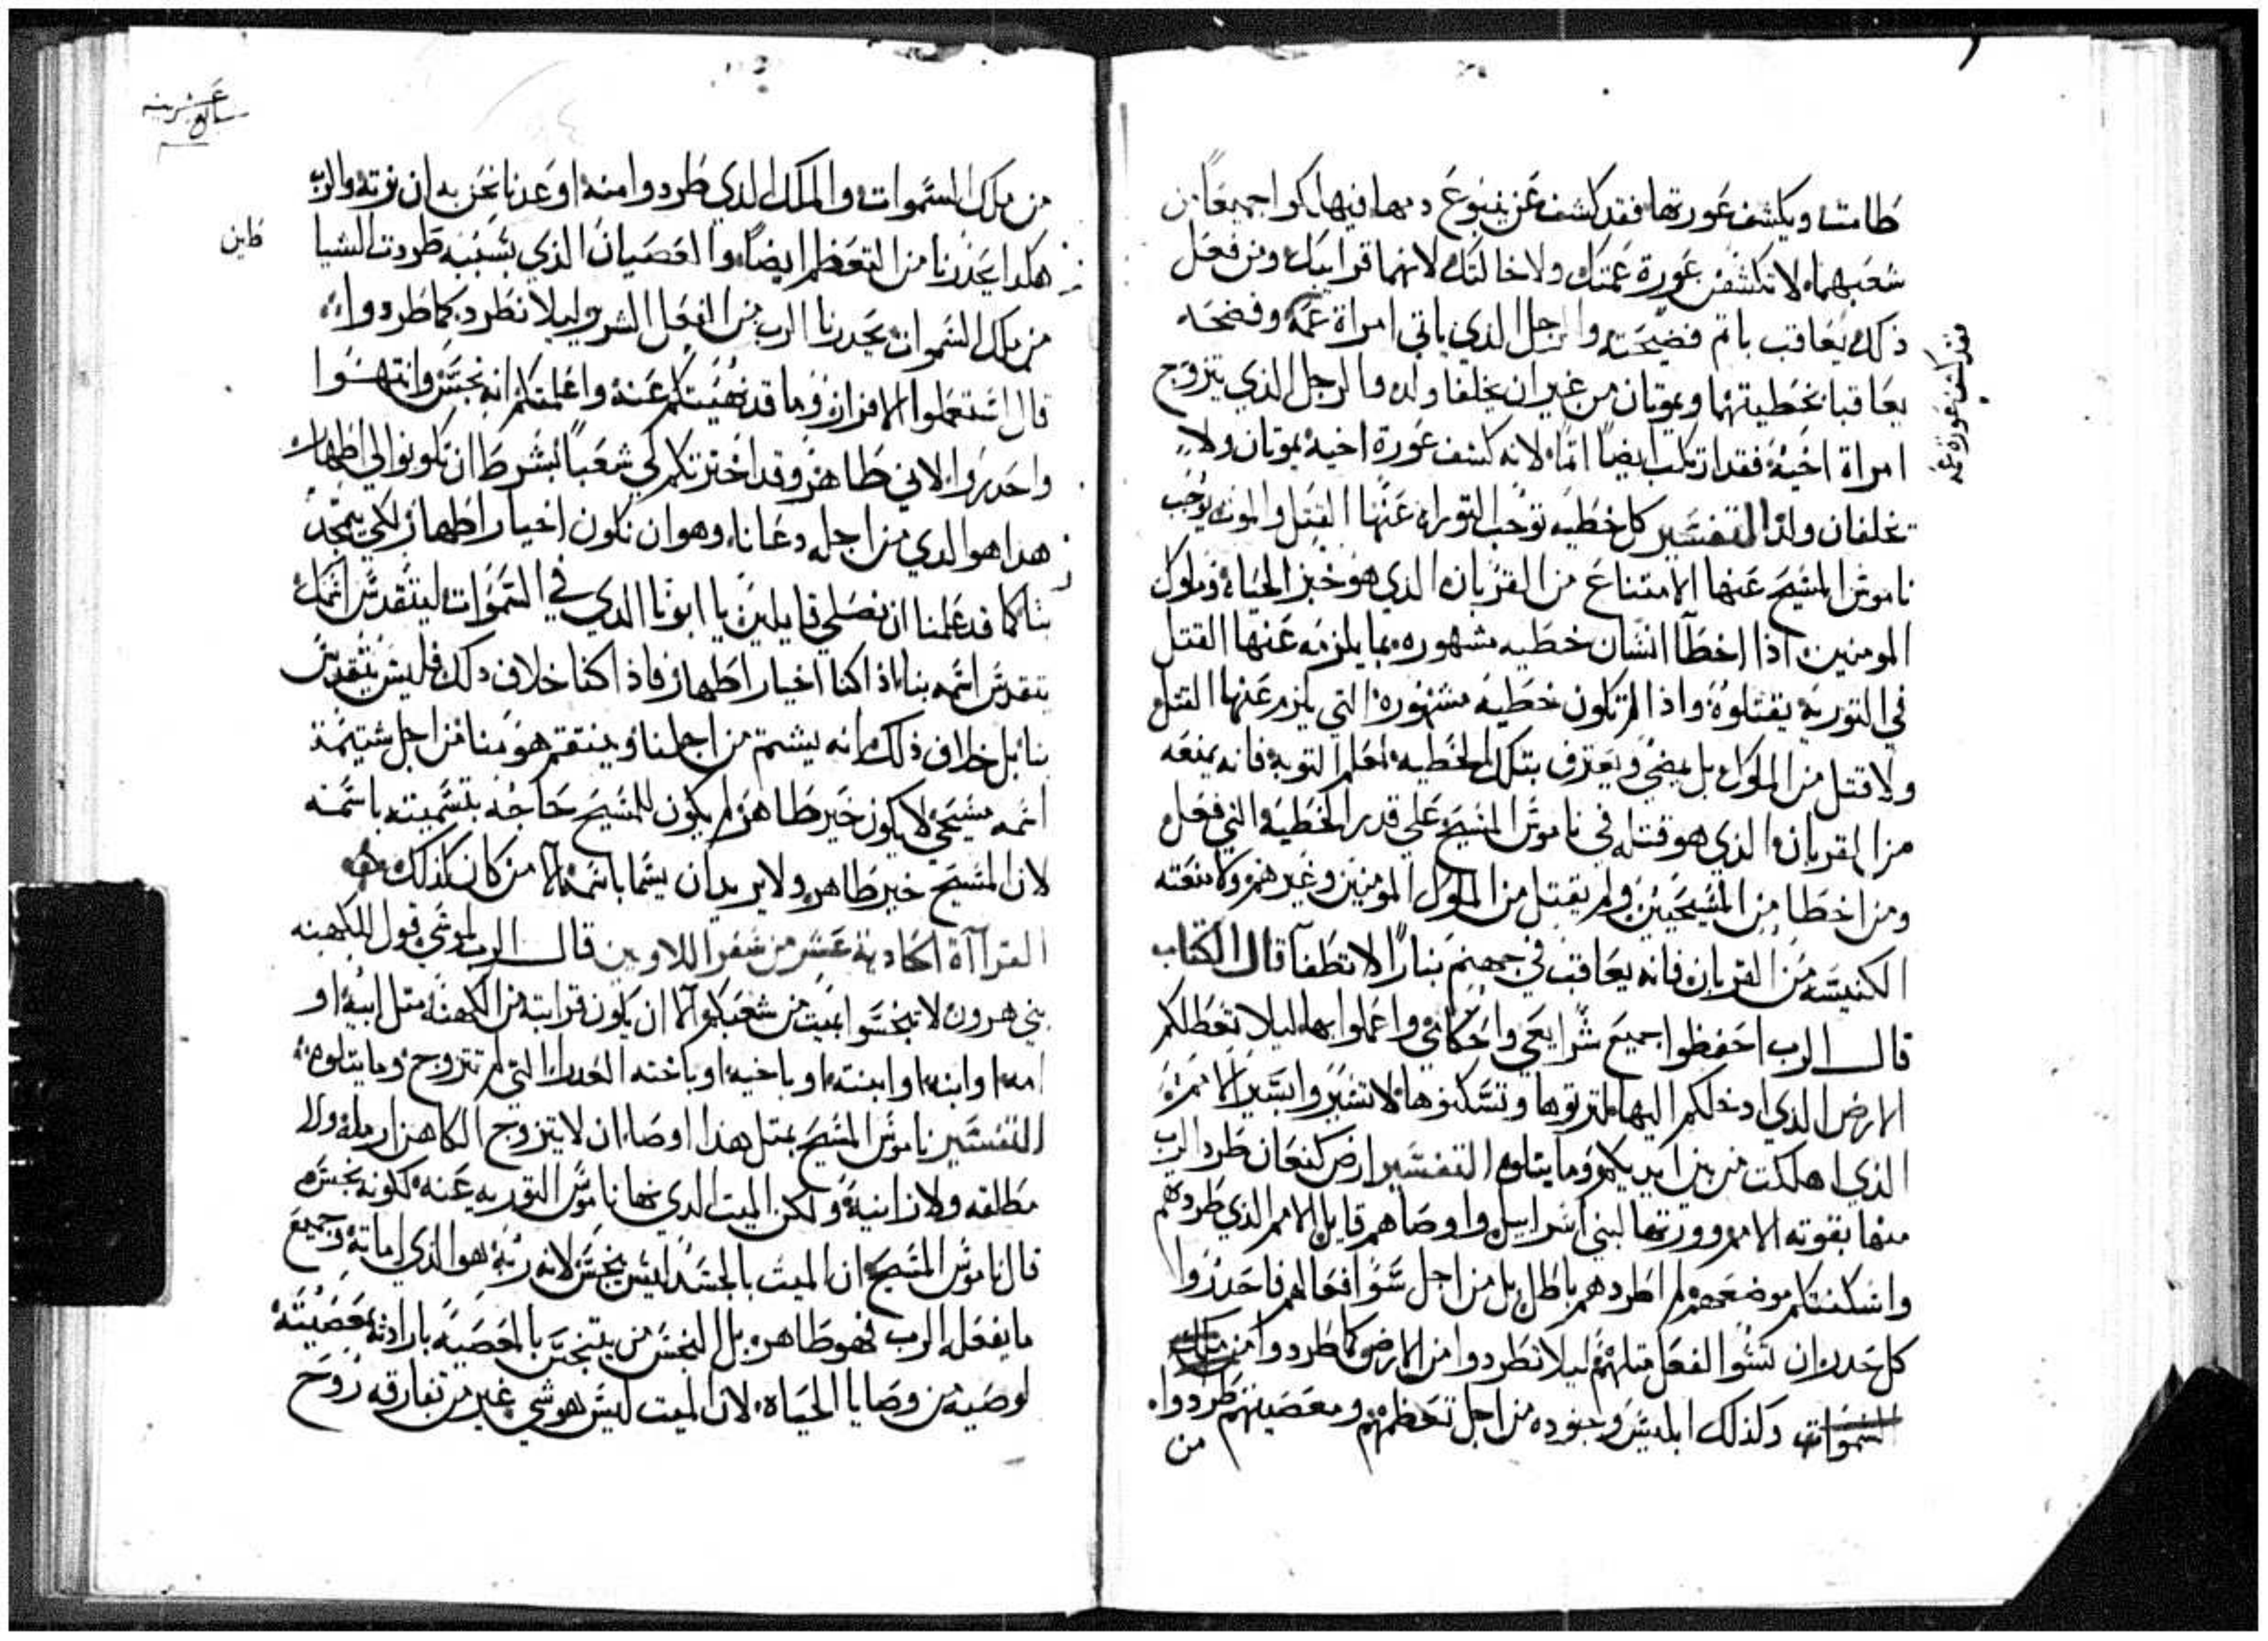 طامث ويكشف عورتها فقد كشف عن ينبوع دمها فيهلكوا جميعًا من
شعبهما لا تكشف عورة عمتك ولا خالتك لانهما قرابيك ومن فعل
ذلك يعاقب باثم فضيحته والرجل الذي ياتي امراة عمه وفضحه
يعاقبا بخطيتهما ويموتان من غير ان يخلفا ولد والرجل الذي يتزوج
امراة اخيه فقد ارتكب ايضًا اثمًا لانه كشف عورة اخيه يموتان ولا
يخلفان ولد التفسير كل خطيه توجب التوراه عنها القتل والموت يوجب
ناموس المسيح عنها الامتناع من القربان الذي هو خبز الحياه وملوك
المومنين اذا اخطآ انسان خطيه مشهوره بما يلزمه عنها القتل
في التورية يقتلوه واذا لم تكون خطيه مشهورة التي يلزم عنها القتل
ولا قتل من الملوك بل يمضي ويعترف بتلك الخطيه لمعلم التوبة فانه يمنعه
من القربان الذي هو قتله في ناموس المسيح على قدر الخطيه التي فعل
ومن اخطا من المسيحيين ولم يقتل من الملوك المومنين وغيرهم ولا منعته
الكنيسه من القربان فانه يعاقب في جهنم بنارًا لا تطفآ قال الكتاب
قال الرب احفظوا جميع شرايعي واحكامي واعملوا بها ليلا تعطلكم
الارض الذي ادخلكم اليها لترتوها وتسكنوها لا تسيروا بسير الامم
الذي اهلكت من بين ايديكم وما يتلوه التفسير ارض كنعان طرد الرب
منها بقوته الامم وورثها لبني اسراييل واوصاهم قايل الامم الذي طردهم
واسكنتكم موضعهم لم اطردهم باطل بل من اجل سوا فعالهم فاحدروا
كل حدر ان تسوا الفعل مثلهم ليلا تطردوا من الارض كما طردوا من ملك
السموات وكذلك ابليس وجنوده من اجل تعظمهم ومعصيتهم طردوا
من
فقد كشف عورة عمه
من ملك السموات والملك الذي طردوا منه اوعدنا نحن به ان نرته والرب
هكدا يحذرنا من التعظم ايضًا والعصيان الذي بسببه طردت الشيا
طين
من ملك السموات يحدرنا الرب من الفعل الشرير ليلا نطرد كما طردوا
قال استعملوا الافراز وما قد نهيتكم عنه واعلمتكم انه نجس وانتهوا
واحدروا لاني طاهر وقد اخترتكم لي شعبًا بشرط ان تكونوا لي اطهار
هدا هو الدي من اجله دعانا وهو ان نكون اخيار اطهار لكي يتمجد
بنا كما قد علمنا ان نصلي قايلين يا ابونا الدي في السموات ليتقدس اسمك
يتقدس اسمه بنا اذا كنا اخيار اطهار فاذا كنا خلاف دلك فليس يتقدس
بنا بل خلاف ذلك انه يشتم من اجلنا وينتقم هو منا من اجل شتيمة
اسمه مسيحي لا يكون خير طاهر لم يكون للمسيح حاجه بتسميته باسمه
لان المسيح خير طاهر ولا يريد ان يسما باسمه الا من كان كذلك
القراآة الحادية عشر من سفر اللاويين قال الرب لموسي قول للكهنه
بني هرون لا تتنجسوا بميت من شعبكم الا ان يكون قرابته من الكهنه مثل ابيه او
امه او ابنه او ابنته او باخيه او باخته العدرا التي لم تتزوج وما يتلوه
التفسير ناموس المسيح بمثل هذا اوصا ان لا يتزوج الكاهن ارملة ولا
مطلقه ولا زانية ولكن الميت الدي نهانا ناموس التوريه عنه كونه نجس
قال ناموس المسيح ان الميت بالجسد ليس بنجس لانه ربه هو الذي اماته وجميع
ما يفعله الرب فهو طاهر بل النجس من يتنجس بالمعصية بارادته بمعصيته
لوصيه من وصايا الحياه لان الميت ليس هو شي غير من تفارقه روح